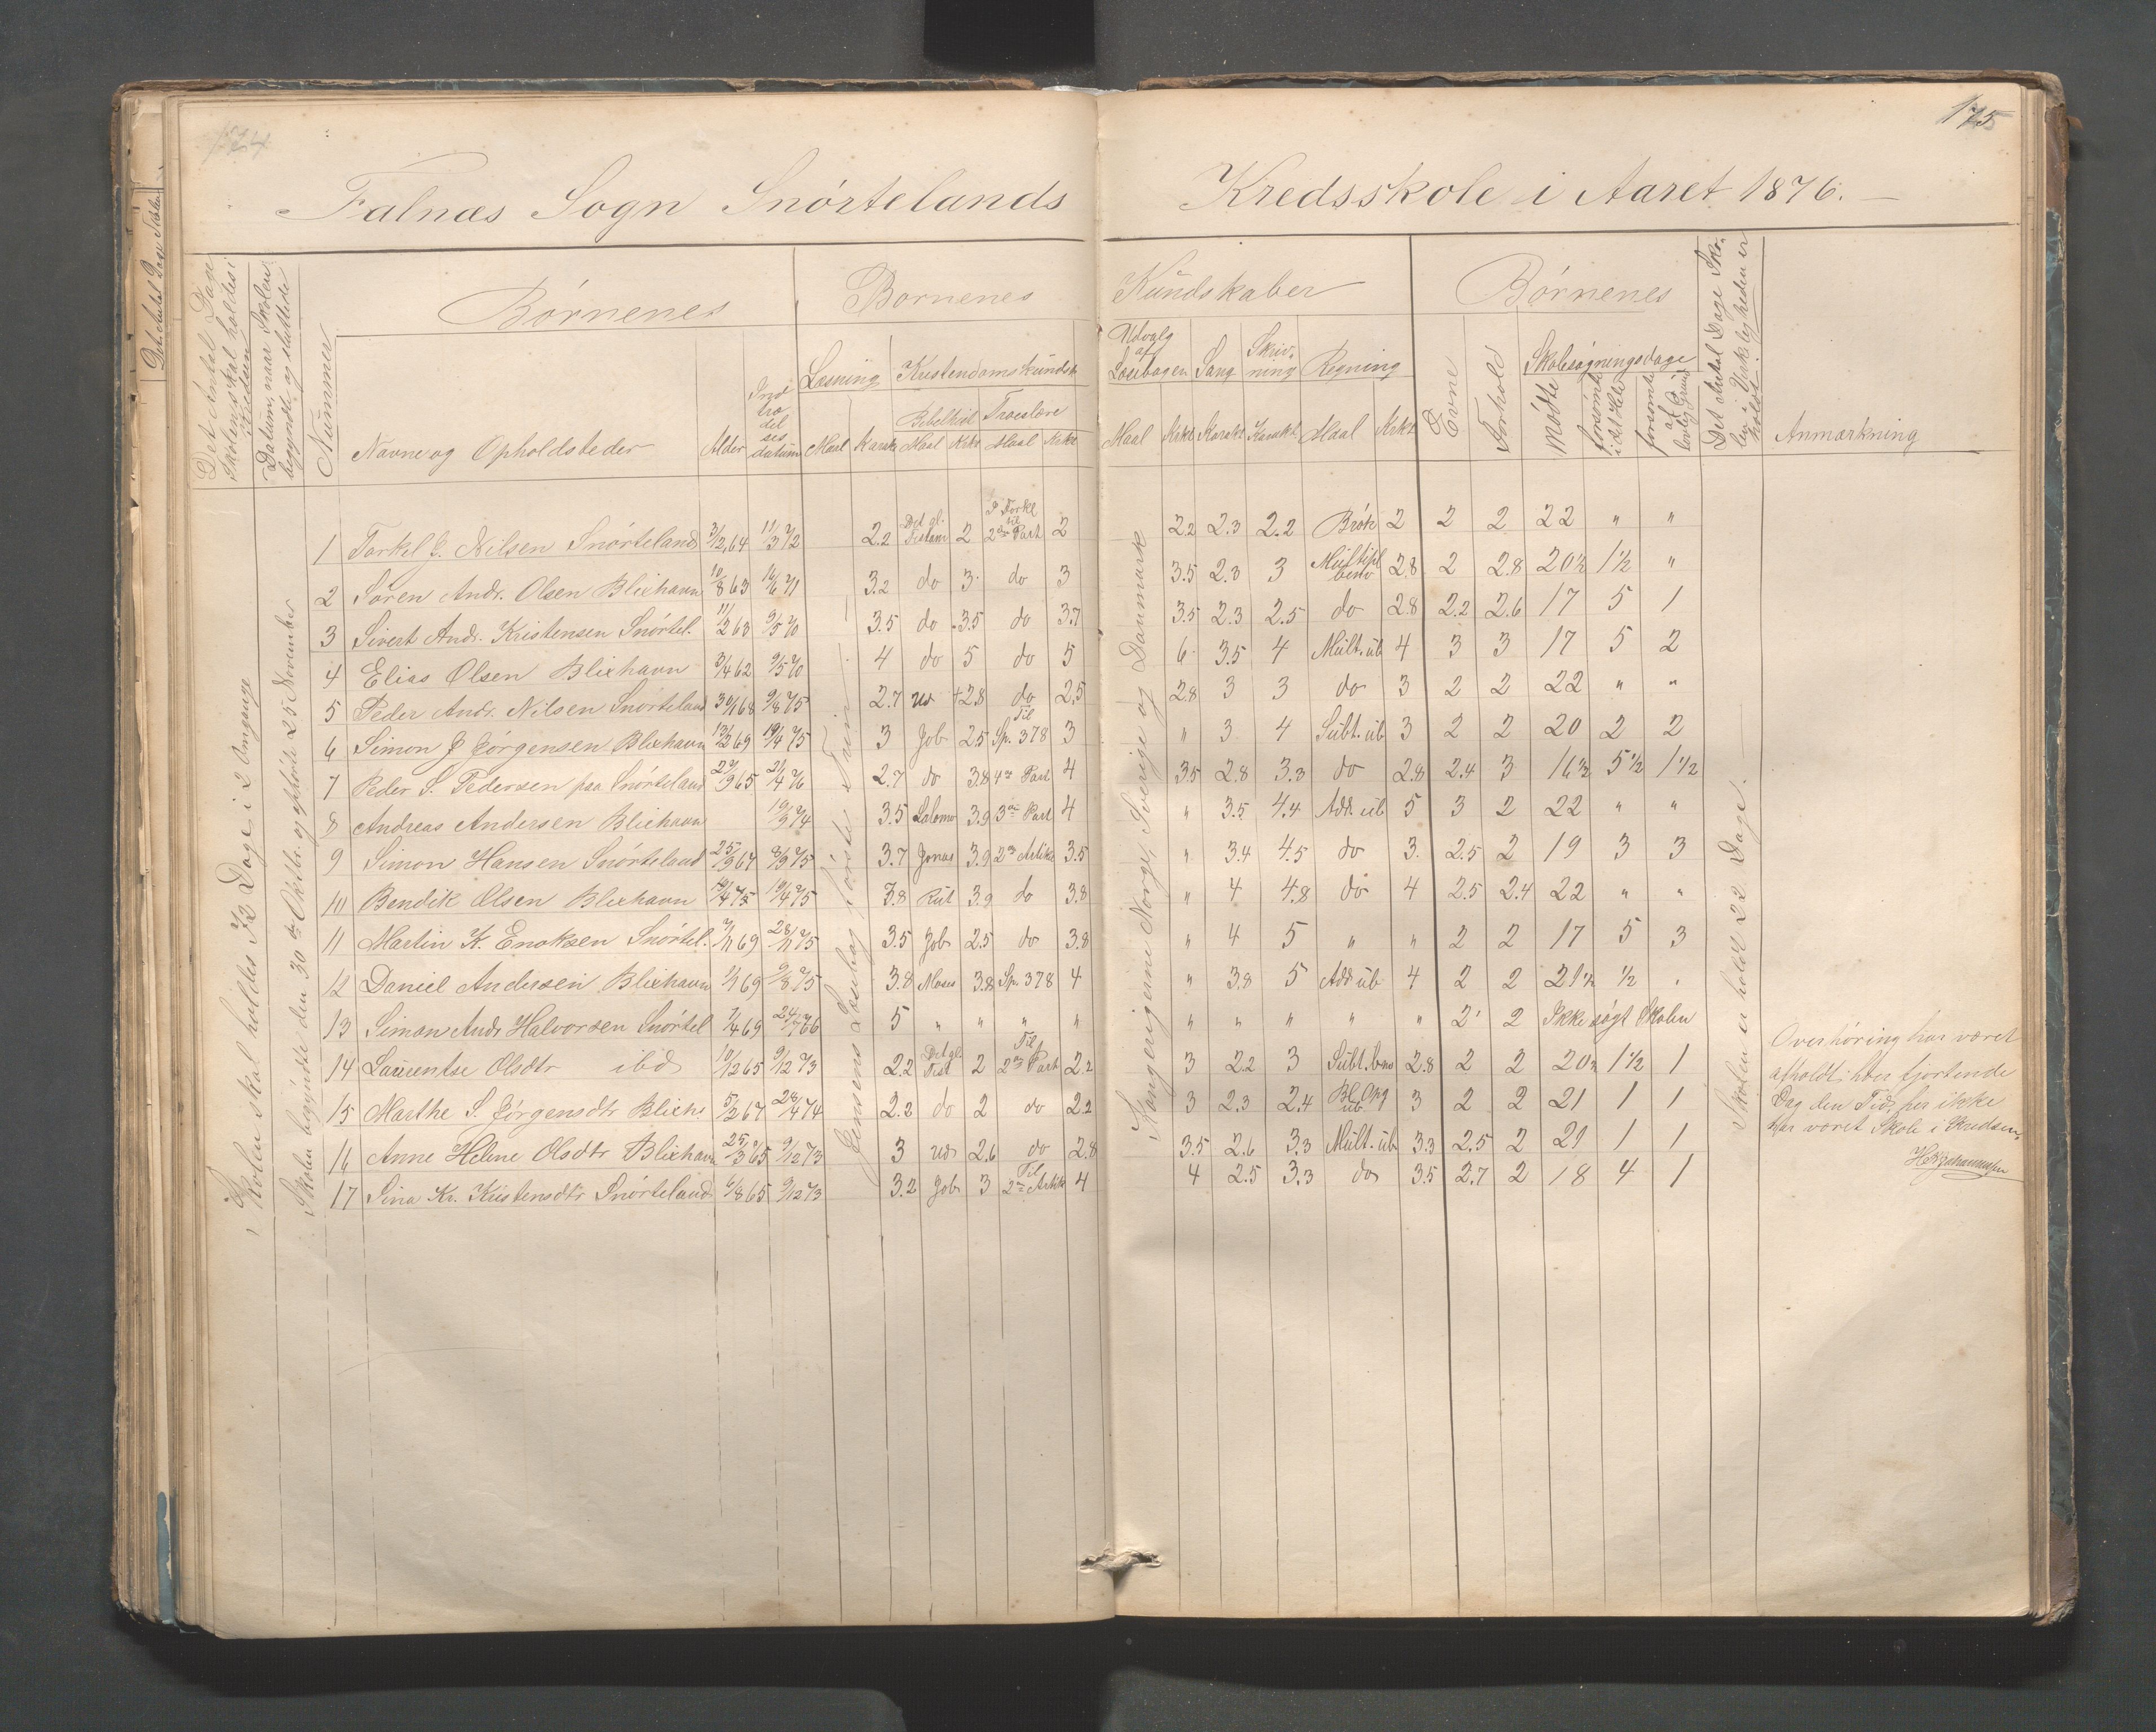 174
175
Falnæs Sogn Snørtelands Kredsskole i Aaret 1876.
Det Antal Dage Skolen skal holdes i Kredsen
Datum, naar Skolen begyndte og sluttede
Nummer
Børnenes
Navne og Opholdsteder
Alder
Indtrædelsesdatum
Børnenes Kundskaber
Læsning
Maal
Karakt
Kristendomskundsk
Bibelhist
Maal
Krkt
Troeslære
Maal
Krkt
Udvalg af Læsebogen
Maal
Krkt
Sang
Karakt
Skrivning
Karakt
Regning
Maal
Krkt
Børnenes
Evne
Forhold
Skolesøgningsdage
Mødte
forsømte i det Hele
forsømte af lovlig Grund
Det Antal Dage Skolen i Virkeligheden er holdt
Anmærkning
Skolen skal holdes i 72 Dage i 2 Omgange
Skolen begyndte den 30te Oktbr. og ophørte 25 November
Jensens Læsebog første Trin
Kongerigerne Norge, Sverige og Danmark
Skolen er holdt 22 Dage.
1 Torkel J. Nilsen Snørteland 3/12 64 11/3 72 2.2 Det gl. Testam 2 I Forkl til 2den Part 2 2.2 2.3 2.2 Brøk 2 2 2 22 " "
2 Søren Andr. Olsen Blixhavn 10/8 63 16/6 71 3.2 do 3 do 3 3.5 2.3 3 Multipl benv 2.8 2 2.8 20½ 1½ "
3 Sivert Andr. Kristensen Snørtel. 11/2 63 9/5 70 3.5 do 3.5 do 3.7 3.5 2.3 2.5 do 2.8 2.2 2.6 17 5 1
4 Elias Olsen Blixhavn 3/4 62 9/5 70 4 do 5 do 5 6 3.5 4 Mult. ub 4 3 3 17 5 2
5 Peder Andr. Nilsen Snørteland 30/1 68 9/8 75 2.7 +2.8 do 2.5 2.8 3 3 do 3 2 2 22 " "
6 Simon J Jørgensen Blixhavn 13/2 69 19/4 75 3 Job 2.5 Til Sp. 378 3 " 3 4 Subt. ub 3 2 2 20 2 2
7 Peder S. Pedersen paa Snørteland 29/3 65 21/4 76 2.7 do 3.8 4de Part 4 3.5 2.8 3.3 do 2.8 2.4 3 16½ 5½ 1½
8 Andreas Andersen Blixhavn 19/3 74 3.5 Salomo 3.9 3die Part 4 " 3.5 4.4 Add. ub 5 3 2 22 " "
9 Simon Hansen Snørteland 25/9 67 8/9 75 3.7 Jonas 3.9 2den Artike 3.5 " 3.4 4.5 do 3. 2.5 2 19 3 3
10 Bendik Olsen Blixhavn 19/4 75 3.8 Rut 3.9 do 3.8 " 4 4.8 do 4 2.5 2.4 22 " "
11 Martin K. Enoksen Snørtel. 7/11 69 28/11 75 3.5 Job 2.5 do 3.8 " 4 5 " " 2 2 17 5 3
12 Daniel Andersen Blixhavn 1/1 69 9/8 75 3.8 Moses 3.8 Sp. 378 4 " 3.8 5 Add ub 4 2 2 21½ ½ "
13 Simon Andr Halvorsen Snørtel 7/4 69 24/7 76 5 " " " " " " " " " 2 2 Ikke søgt Skolen
14 Laurentse Olsdtr ibd 10/12 65 9/12 73 2.2 Det gl. Test 2 Til 2den Part 2.2 3 2.2 3 Subt. bnv 2.8 2 2 20½ 1½ 1
15 Marthe S. Jørgensdtr Blixh. 5/2 67 28/4 74 2.2 do 2 do 2.2 3 2.3 2.4 Bl. Opg ub. 3 2 2 21 1 1
16 Anne Helene Olsdtr Blixhavn 25/3 65 9/12 73 3 2.6 do 2.8 3.5 2.6 3.3 Mult. ub 3.3 2.5 2 21 1 1
17 Sina Kr. Kristensdtr Snørteland 6/8 65 9/12 73 3.2 Job 3 Til 2den Artik 4 4 2.5 3.3 do 3.5 2.7 2 18 4 1
Overhøring har været
afholdt hver fjortende
Dag den Tid her ikke
har været Skole i Kredsen.